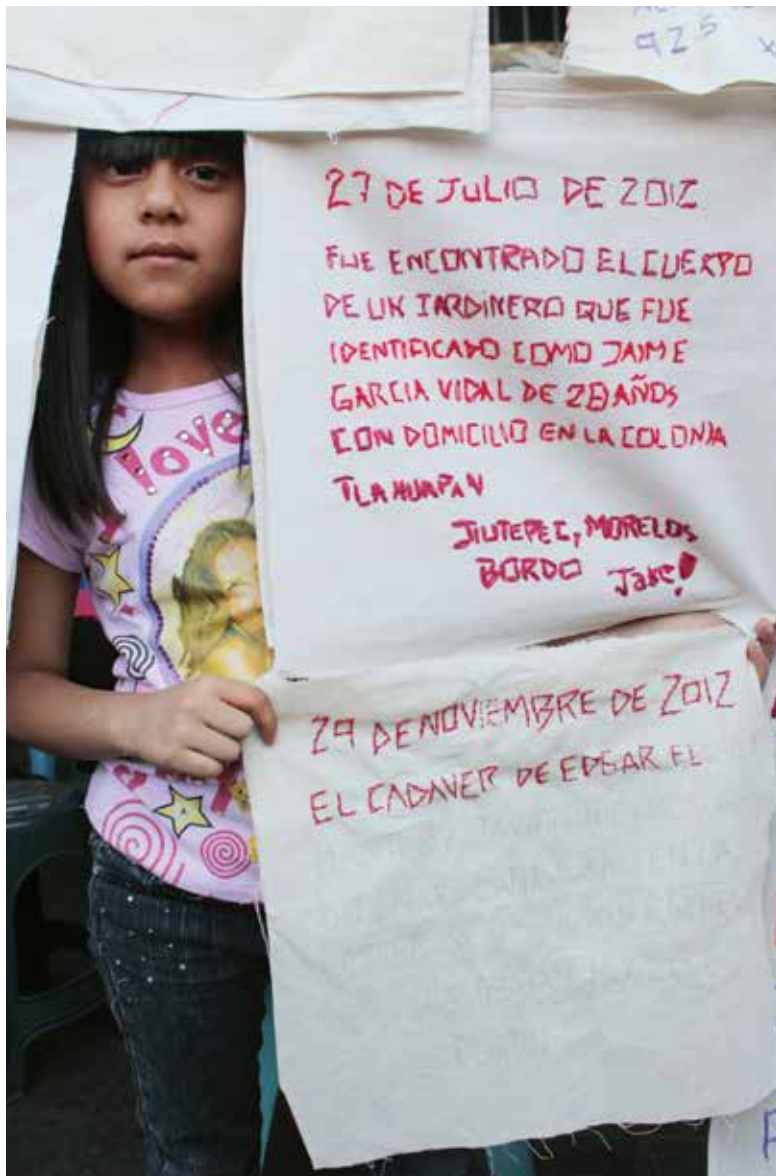 92⁵
love
27 DE JULIO DE 2012
FUE ENCONTRADO EL CUERPO
DE UN JARDINERO QUE FUE
IDENTIFICADO COMO JAIME
GARCIA VIDAL DE 28 AÑOS
CON DOMICILIO EN LA COLONIA
TLAHUAPAN
JIUTEPEC, MORELOS
BORDO
29 DE NOVIEMBRE DE 2012
EL CADAVER DE EDGAR EL